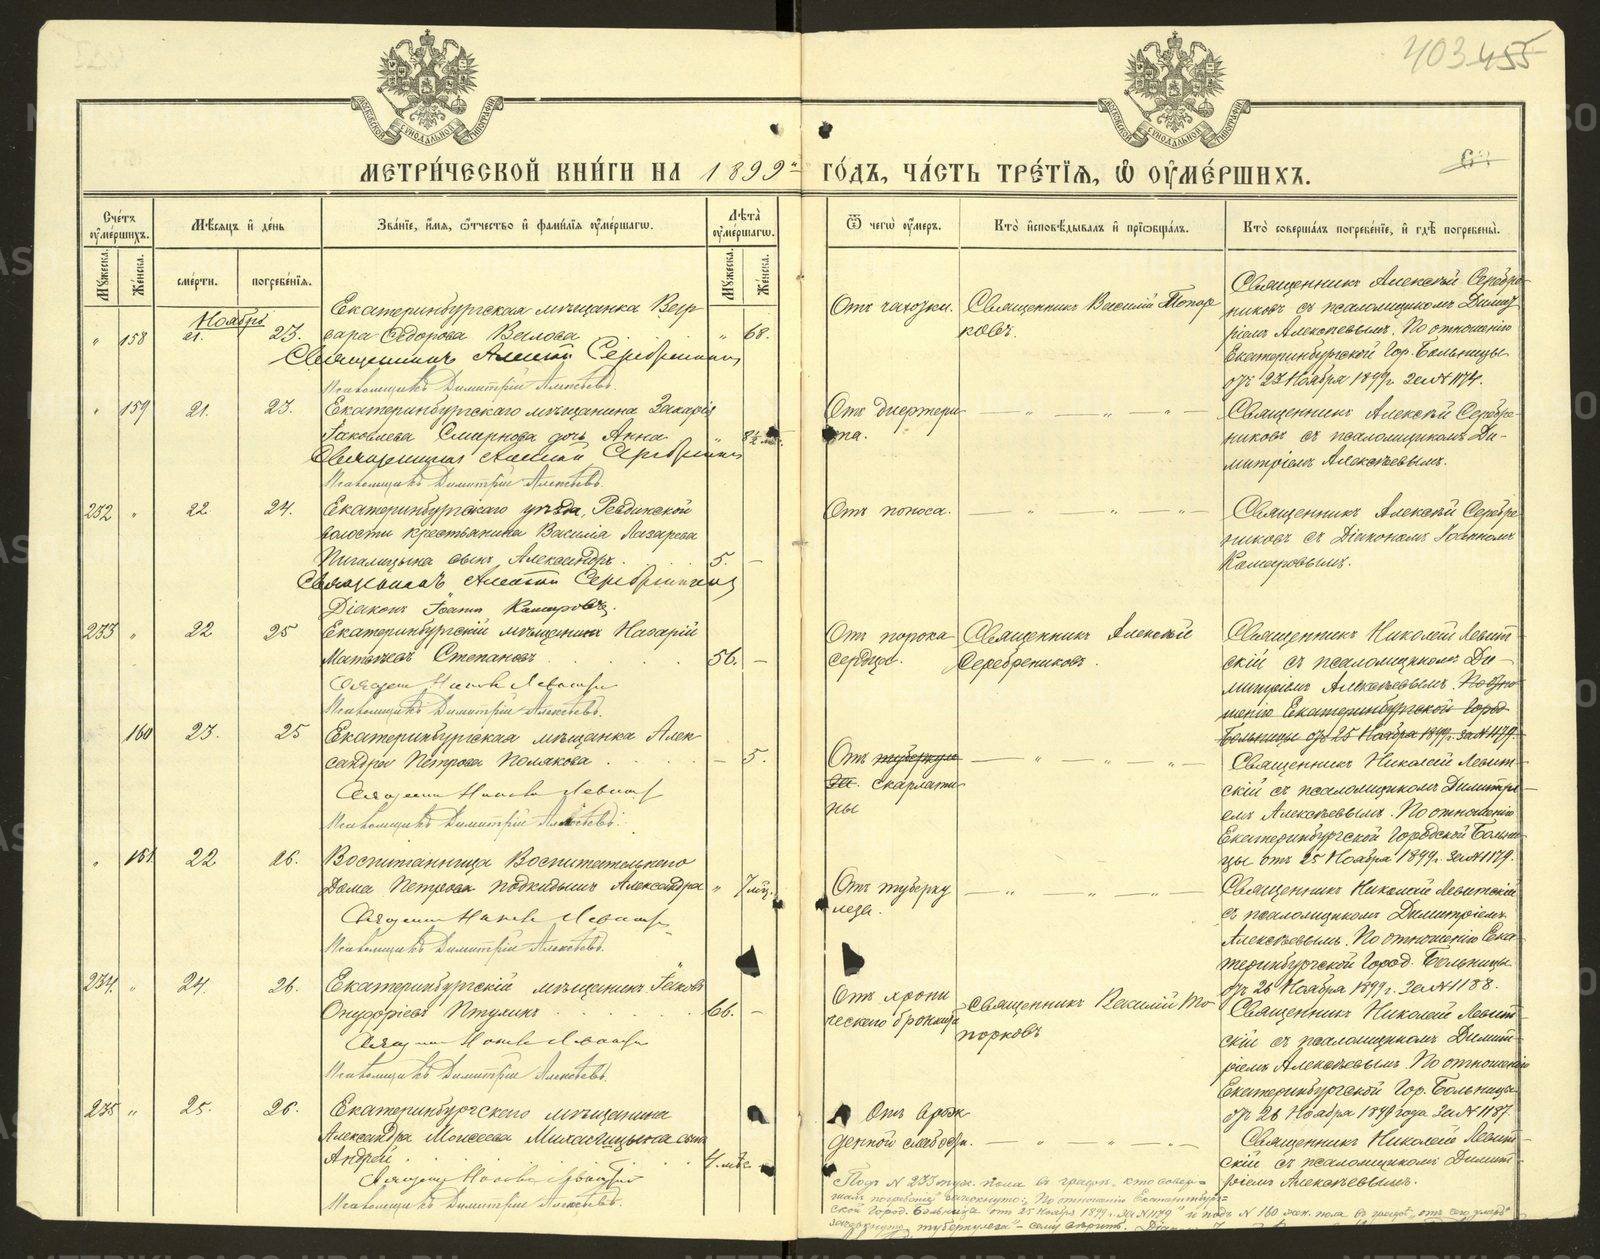 403 455
МЕТРИ́ЧЕСКОЙ КНИ́ГИ НА 1899й ГО́ДЪ, ЧА́СТЬ ТРЕ́ТІѦ, Ѡ ОУ҆МЕ́РШИХЪ.
Сче́тъ оу҆ме́ршихъ.
Мѣ́сяцъ и҆ де́нь
Зва́ніе, и҆́мя, ѻ҆́тчество и҆ фами́лія оу҆ме́ршагѡ.
Лѣ́та оу҆ме́ршагѡ.
Ѿ чегѡ̀ оу҆́меръ.
Кто̀ и҆сповѣ́дывалъ и҆ прїѡбща́лъ.
Кто̀ соверша́лъ погребе́ніе, и҆ гдѣ̀ погребены̀.
Му́жеска.
Же́нска.
сме́рти.
погребе́нія.
Му́жеска.
Же́нска.
Ноябрь
" 158 21. 23.
Екатеринбургская мѣщанка
сара Ѳедорова Вялова " 68.
Священникъ Алексѣй Серебренниковъ
Псаломщикъ Димитрій Алексѣевъ.
Отъ чахотки.
Священникъ Василій Топор
ковъ.
Священникъ Алексѣй Серебре
никовъ съ псаломщикомъ Димит
ріемъ Алексѣевымъ. По отношенію
Екатеринбургской Гор. Больницы
отъ 23 Ноября 1899 г. за № 1174.
" 159 21. 23.
Екатеринбургскаго мѣщанина Захарія
Іаковлева Смирнова дочь Анна. "
Священникъ Алексѣй Серебренниковъ
Псаломщикъ Димитрій Алексѣевъ.
Отъ дифтери
та.
Священникъ Алексѣй Серебре
никовъ съ псаломщикомъ Ди-
митріемъ Алексѣевымъ.
232 " 22 24.
Екатеринбургскаго уѣзда, Ревдинской
волости крестьянина Василія Лазарева
Пигалицына сынъ Александръ. 5. —
Священникъ Алексѣй Серебренниковъ
Діаконъ Іоаннъ Комаровъ.
Отъ поноса.
Священникъ Алексѣй Серебре
никовъ съ Діакономъ Іоанномъ
Комаровымъ.
233 " 22 25
Екатеринбургскій мѣщанинъ Назарій
Матвѣевъ Степановъ 56. —
Священ. Николай Левитскій
Псаломщикъ Димитрій Алексѣевъ.
Отъ порока
сердца.
Священникъ Алексѣй
Серебрениковъ.
Священникъ Николай Левит
скій съ псаломщикомъ Ди-
митріемъ Алексѣевымъ. По отно
шенію Екатеринбургской Город
Больницы отъ 25 Ноября 1899 г. за № 1179.
160 23. 25
Екатеринбургская мѣщанка Алек
сандра Петрова Полякова — 5.
Священ. Николай Левитскій
Псаломщикъ Димитрій Алексѣевъ.
Отъ туберкуле
за. скарлати
ны
Священникъ Николай Левит
скій съ псаломщикомъ Димитрі
емъ Алексѣевымъ. По отношенію
Екатеринбургской Городской Больни
цы отъ 25 Ноября 1899 г. за № 1179.
" 161 22 26.
Воспитанница Воспитательнаго
Дома Петрова подкидышъ Александра " 7 мѣс.
Священ. Николай Левитскій
Псаломщикъ Димитрій Алексѣевъ.
Отъ туберку
леза.
Священникъ Николай Левитскій
съ псаломщикомъ Димитріемъ
Алексѣевымъ. По отношенію Ека
теринбургской Город. Больницы
отъ 26 Ноября 1899 г. за № 1188.
234. " 24. 26.
Екатеринбургскій мѣщанинъ Іаковъ
Онуфріевъ Птухинъ 66. —
Священ. Николай Левитскій
Псаломщикъ Димитрій Алексѣевъ.
Отъ хрони
ческаго бронхита
Священникъ Василій То
порковъ
Священникъ Николай Левит
скій съ псаломщикомъ Димит
ріемъ Алексѣевымъ. По отношенію
Екатеринбургской Гор. Больницы
отъ 26 Ноября 1899 года за № 1187.
235 " 25. 26.
Екатеринбургскаго мѣщанина
Александра Моисеева сынъ
Андрей
Священ. Николай Левитскій
Псаломщикъ Димитрій Алексѣевъ.
Отъ врож
денной слабости.
Священникъ Николай Левит
скій съ псаломщикомъ Димит
ріемъ Алексѣевымъ.
Подъ № 233 муж. пола въ графѣ „кто совер-
шалъ погребеніе" зачеркнуто: „По отношенію Екатеринбург-
ской Город. Больницы отъ 25 Ноября 1899 г. за № 1179" и подъ № 160 жен. пола въ графѣ „отъ чего умеръ"
зачеркнуто „туберкулеза" — сему вѣрить.